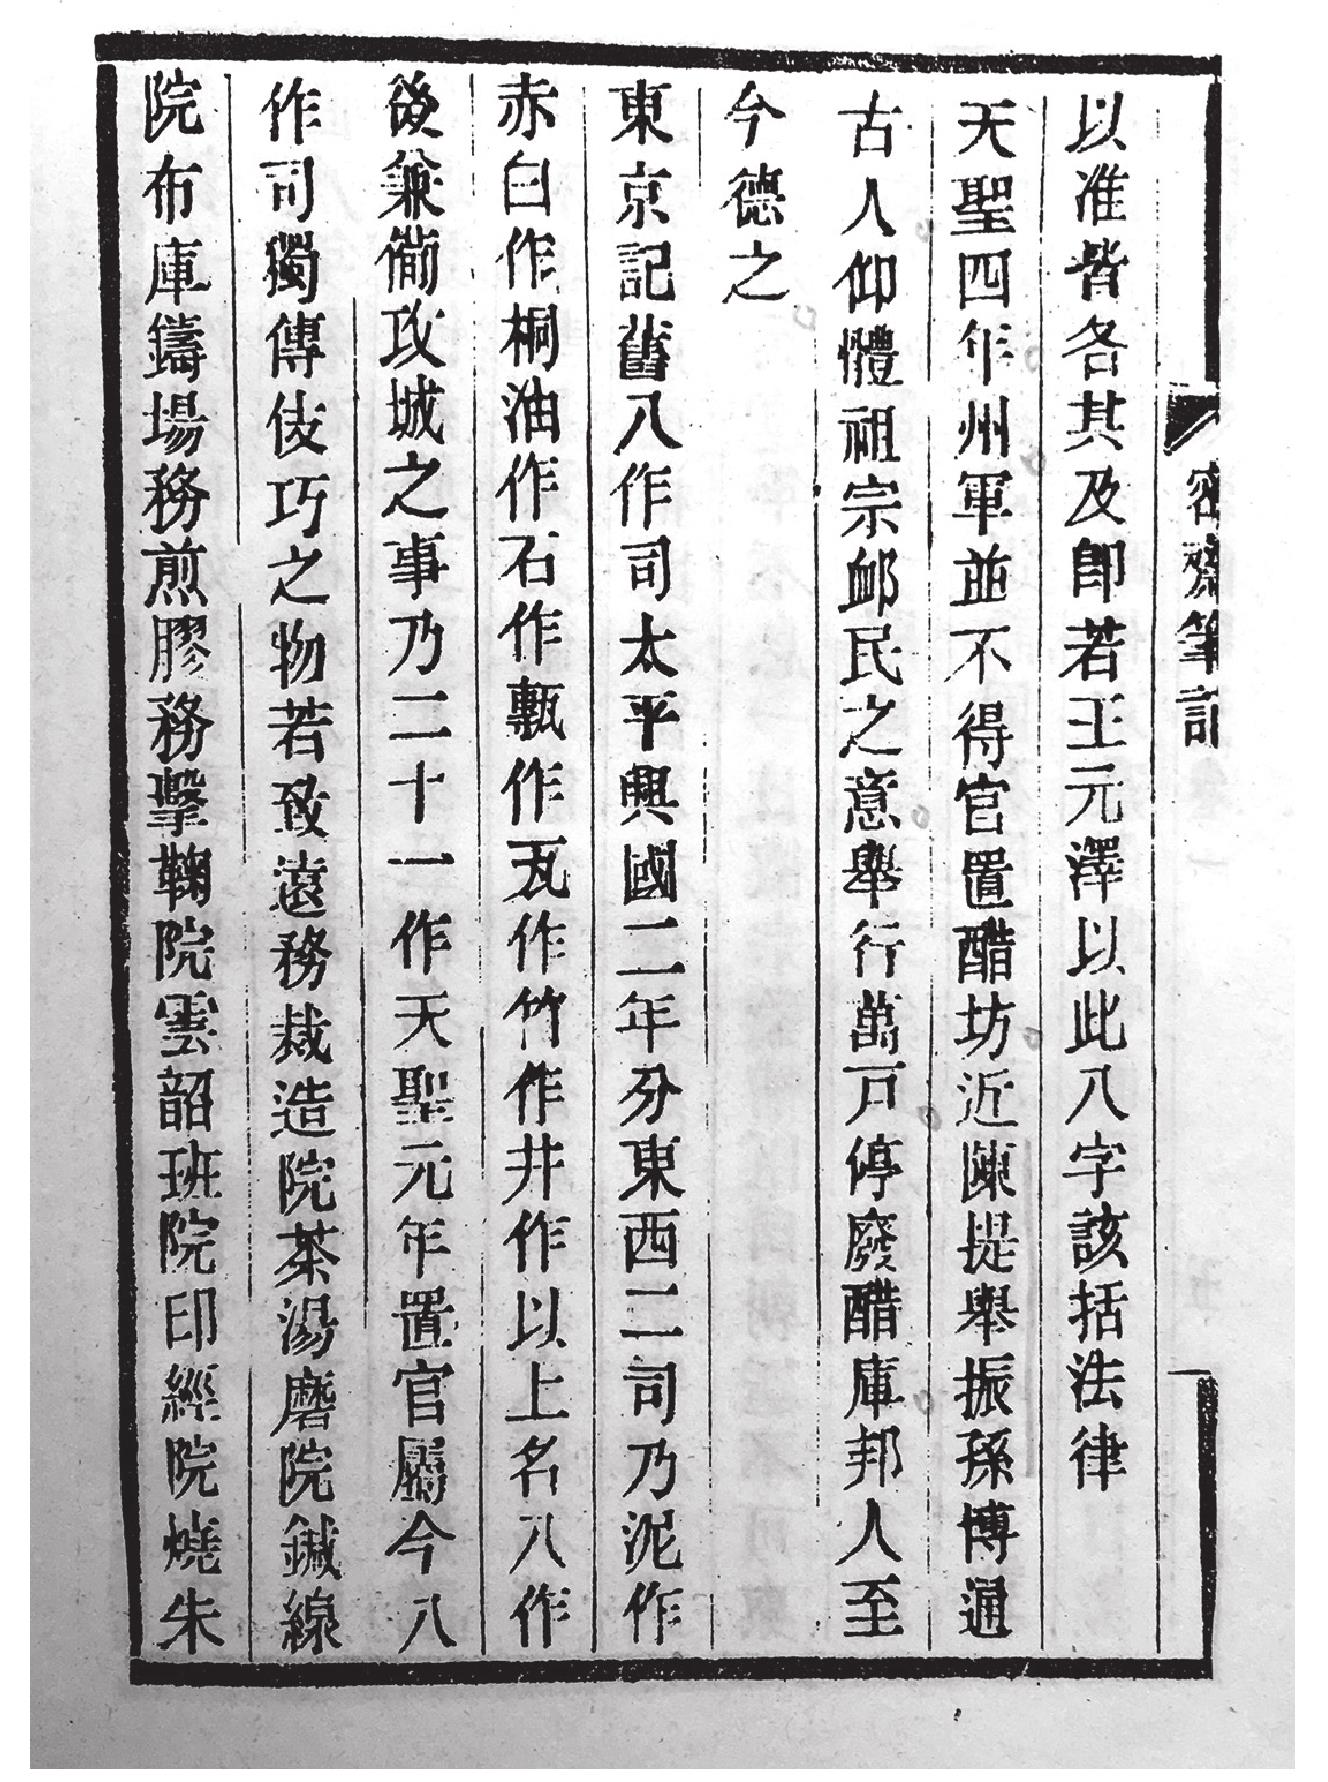 密齋筆記
以准皆各其及卽若王元澤以此八字該括法律
天聖四年州軍並不得官置醋坊近陳提舉振孫博通
古人仰體祖宗䘏民之意舉行萬戸停廢醋庫邦人至
今德之
東京記舊八作司太平興國二年分東西二司乃泥作
赤白作桐油作石作甎作瓦作竹作井作以上名八作
後兼備攻城之事乃二十一作天聖元年置官屬今八
作司獨傳伎巧之物若致遠務裁造院茶湯磨院鍼線
院布庫鑄場務煎膠務擊鞠院雲韶班院印經院燒朱